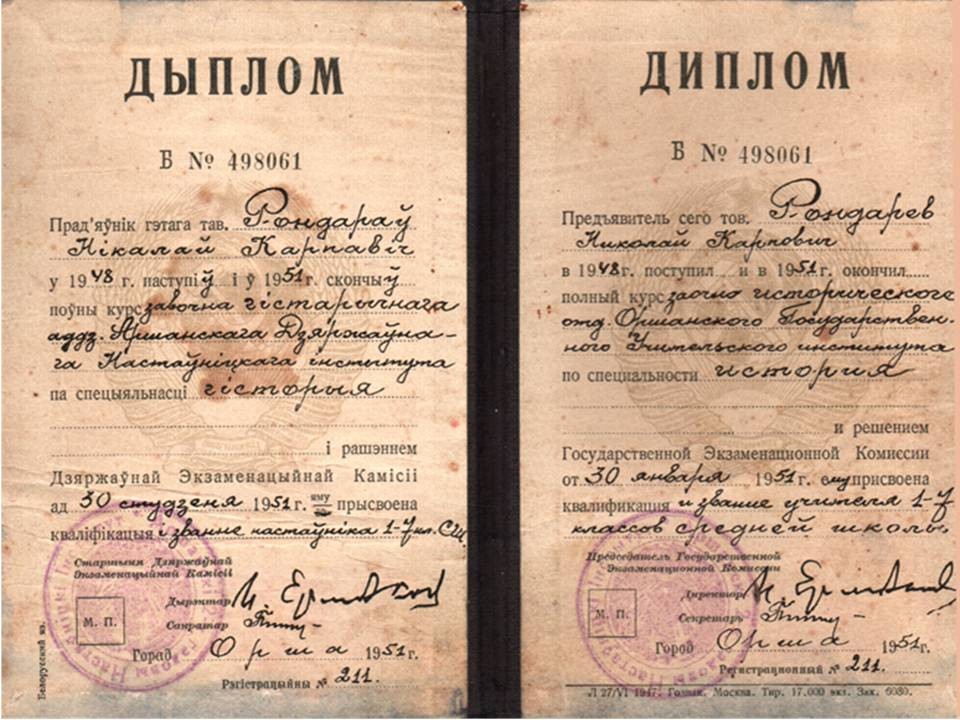 ДЫПЛОМ
Б № 498061
Прад'яўнік гэтага тав. Рондараў
Нікалай Карпавіч
у 1948 г. наступіў і ў 1951 г. скончыў
поўны курс завочна гістарычнага
аддз. Аршанскага Дзяржаўна-
га Настаўніцкага інстытута
па спецыяльнасці гісторыя
і рашэннем
Дзяржаўнай Экзаменацыйнай Камісіі
ад 30 студзеня 1951 г. яму прысвоена
кваліфікацыя і званне настаўніка 1-7 кл. СШ
Старшыня Дзяржаўнай
Экзаменацыйнай Камісіі
Дырэктар
М. П.
Сакратар
Город Орша 1951 г.
Рэгістрацыйны № 211.
Белорусский яз.
ДИПЛОМ
Б № 498061
Предъявитель сего тов. Рондарев
Николай Карпович
в 1948 г. поступил и в 1951 г. окончил
полный курс заочно исторического
отд. Оршанского Государствен-
ного Учительского института
по специальности история
и решением
Государственной Экзаменационной Комиссии
от 30 января 1951 г. ему присвоена
квалификация и звание учителя 1-7
классов средней школы
Председатель Государственной
Экзаменационной Комиссии
Директор
М. П.
Секретарь
Город Орша 1951 г.
Регистрационный № 211.
Л 27/VI 1947. Гознак. Москва. Тир. 17.000 экз. Зак. 6080.